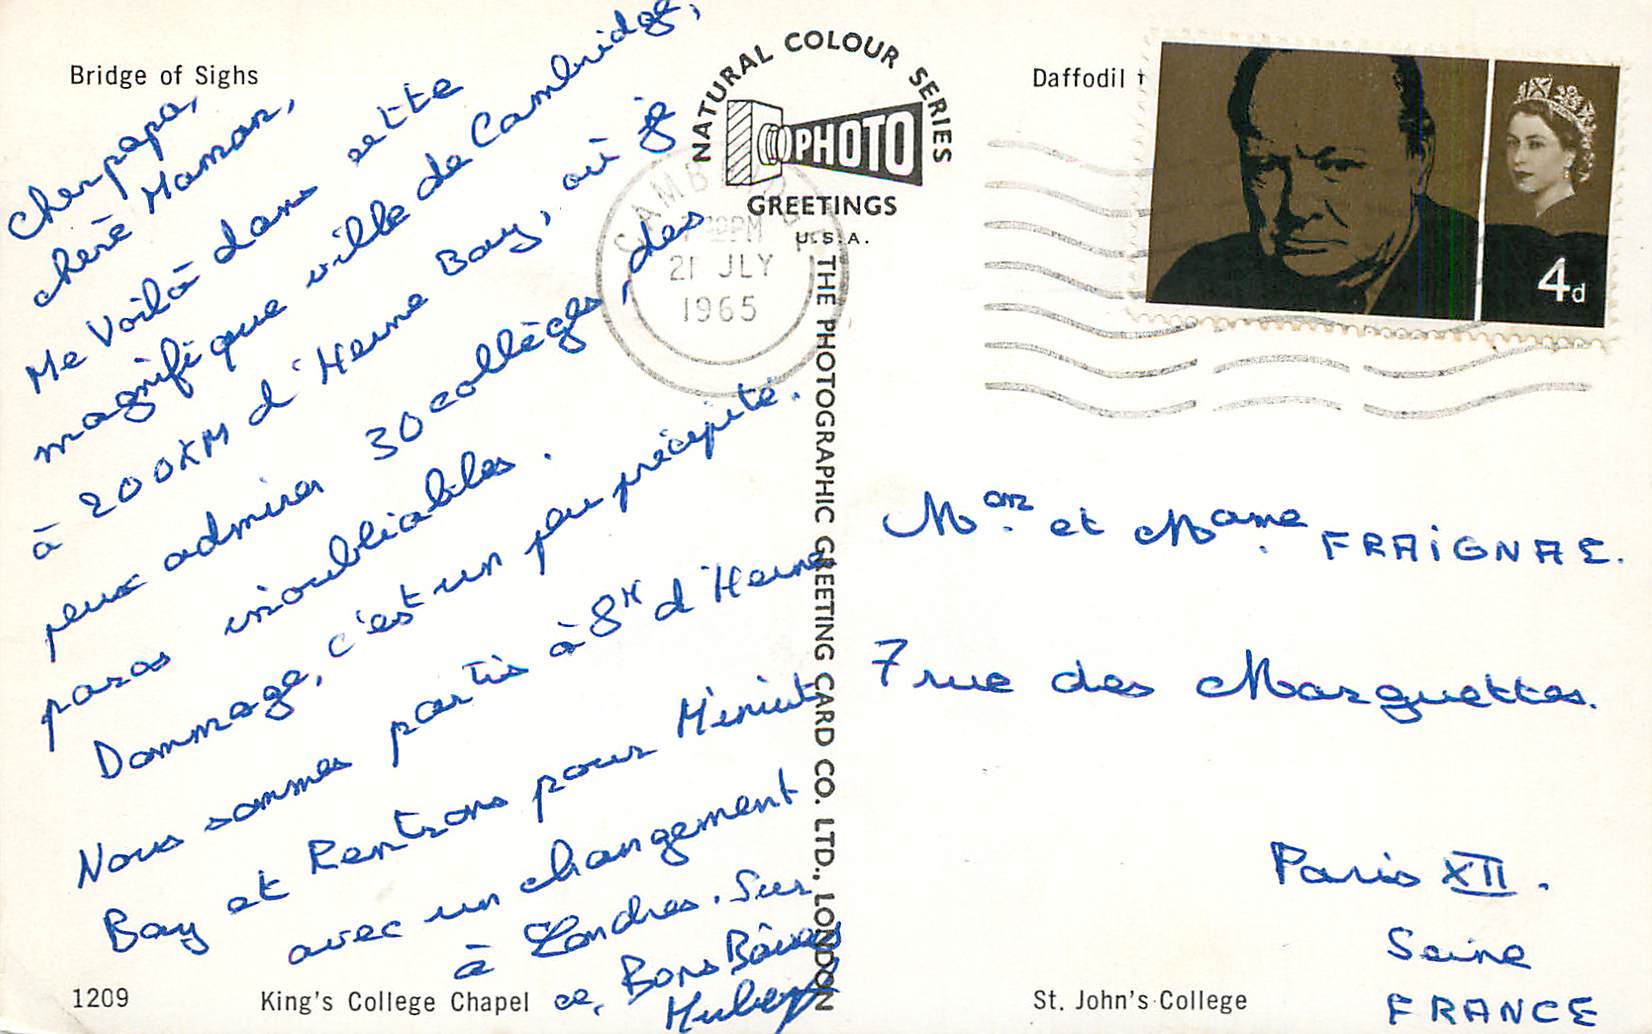 Bridge of Sighs
Cher papa,
chère Maman,
Me Voilà dans cette
magnifique ville de Cambridge,
à 200KM d'Herne Bay, où je
peux admirer 30 collèges, des
parcs inoubliables.
Dommage, c'est un peu précipité.
Nous sommes partis à 8H d'Herne
Bay et Rentrons pour Minuit
avec un changement
à Londres. Sur
ce, Bons Baisers
Hubert
1209
King's College Chapel
NATURAL COLOUR SERIES
PHOTO
GREETINGS
U.S.A.
THE PHOTOGRAPHIC GREETING CARD CO. LTD., LONDON
CAMBRIDGE
PM
21 JLY
1965
Daffodil
4d
Mon. et Mame. FRAIGNAE.
7 rue des Marguettes.
Paris XII.
Seine
FRANCE
St. John's College